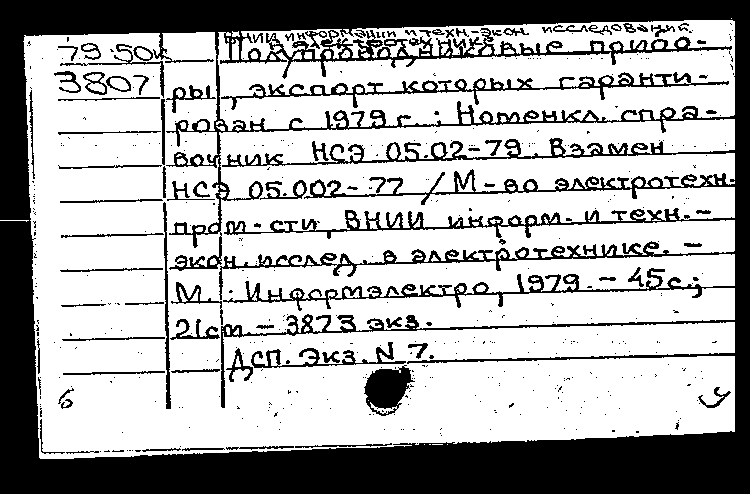 ВНИИ информации и техн.-экон. исследований
в электротехнике
79.50к Полупроводниковые прибо-
3807 ры, экспорт которых гаранти-
рован с 1979 г.; Номенкл. спра-
вочник НСЭ 05.02-79. Взамен
НСЭ 05.002-77 / М-во электротехн.
пром-сти, ВНИИ информ. и техн.-
экон. исслед. в электротехнике. –
М.: Информэлектро, 1979. – 45 с.;
21 см. – 3873 экз.
ДСП. Экз. N 7.
б У